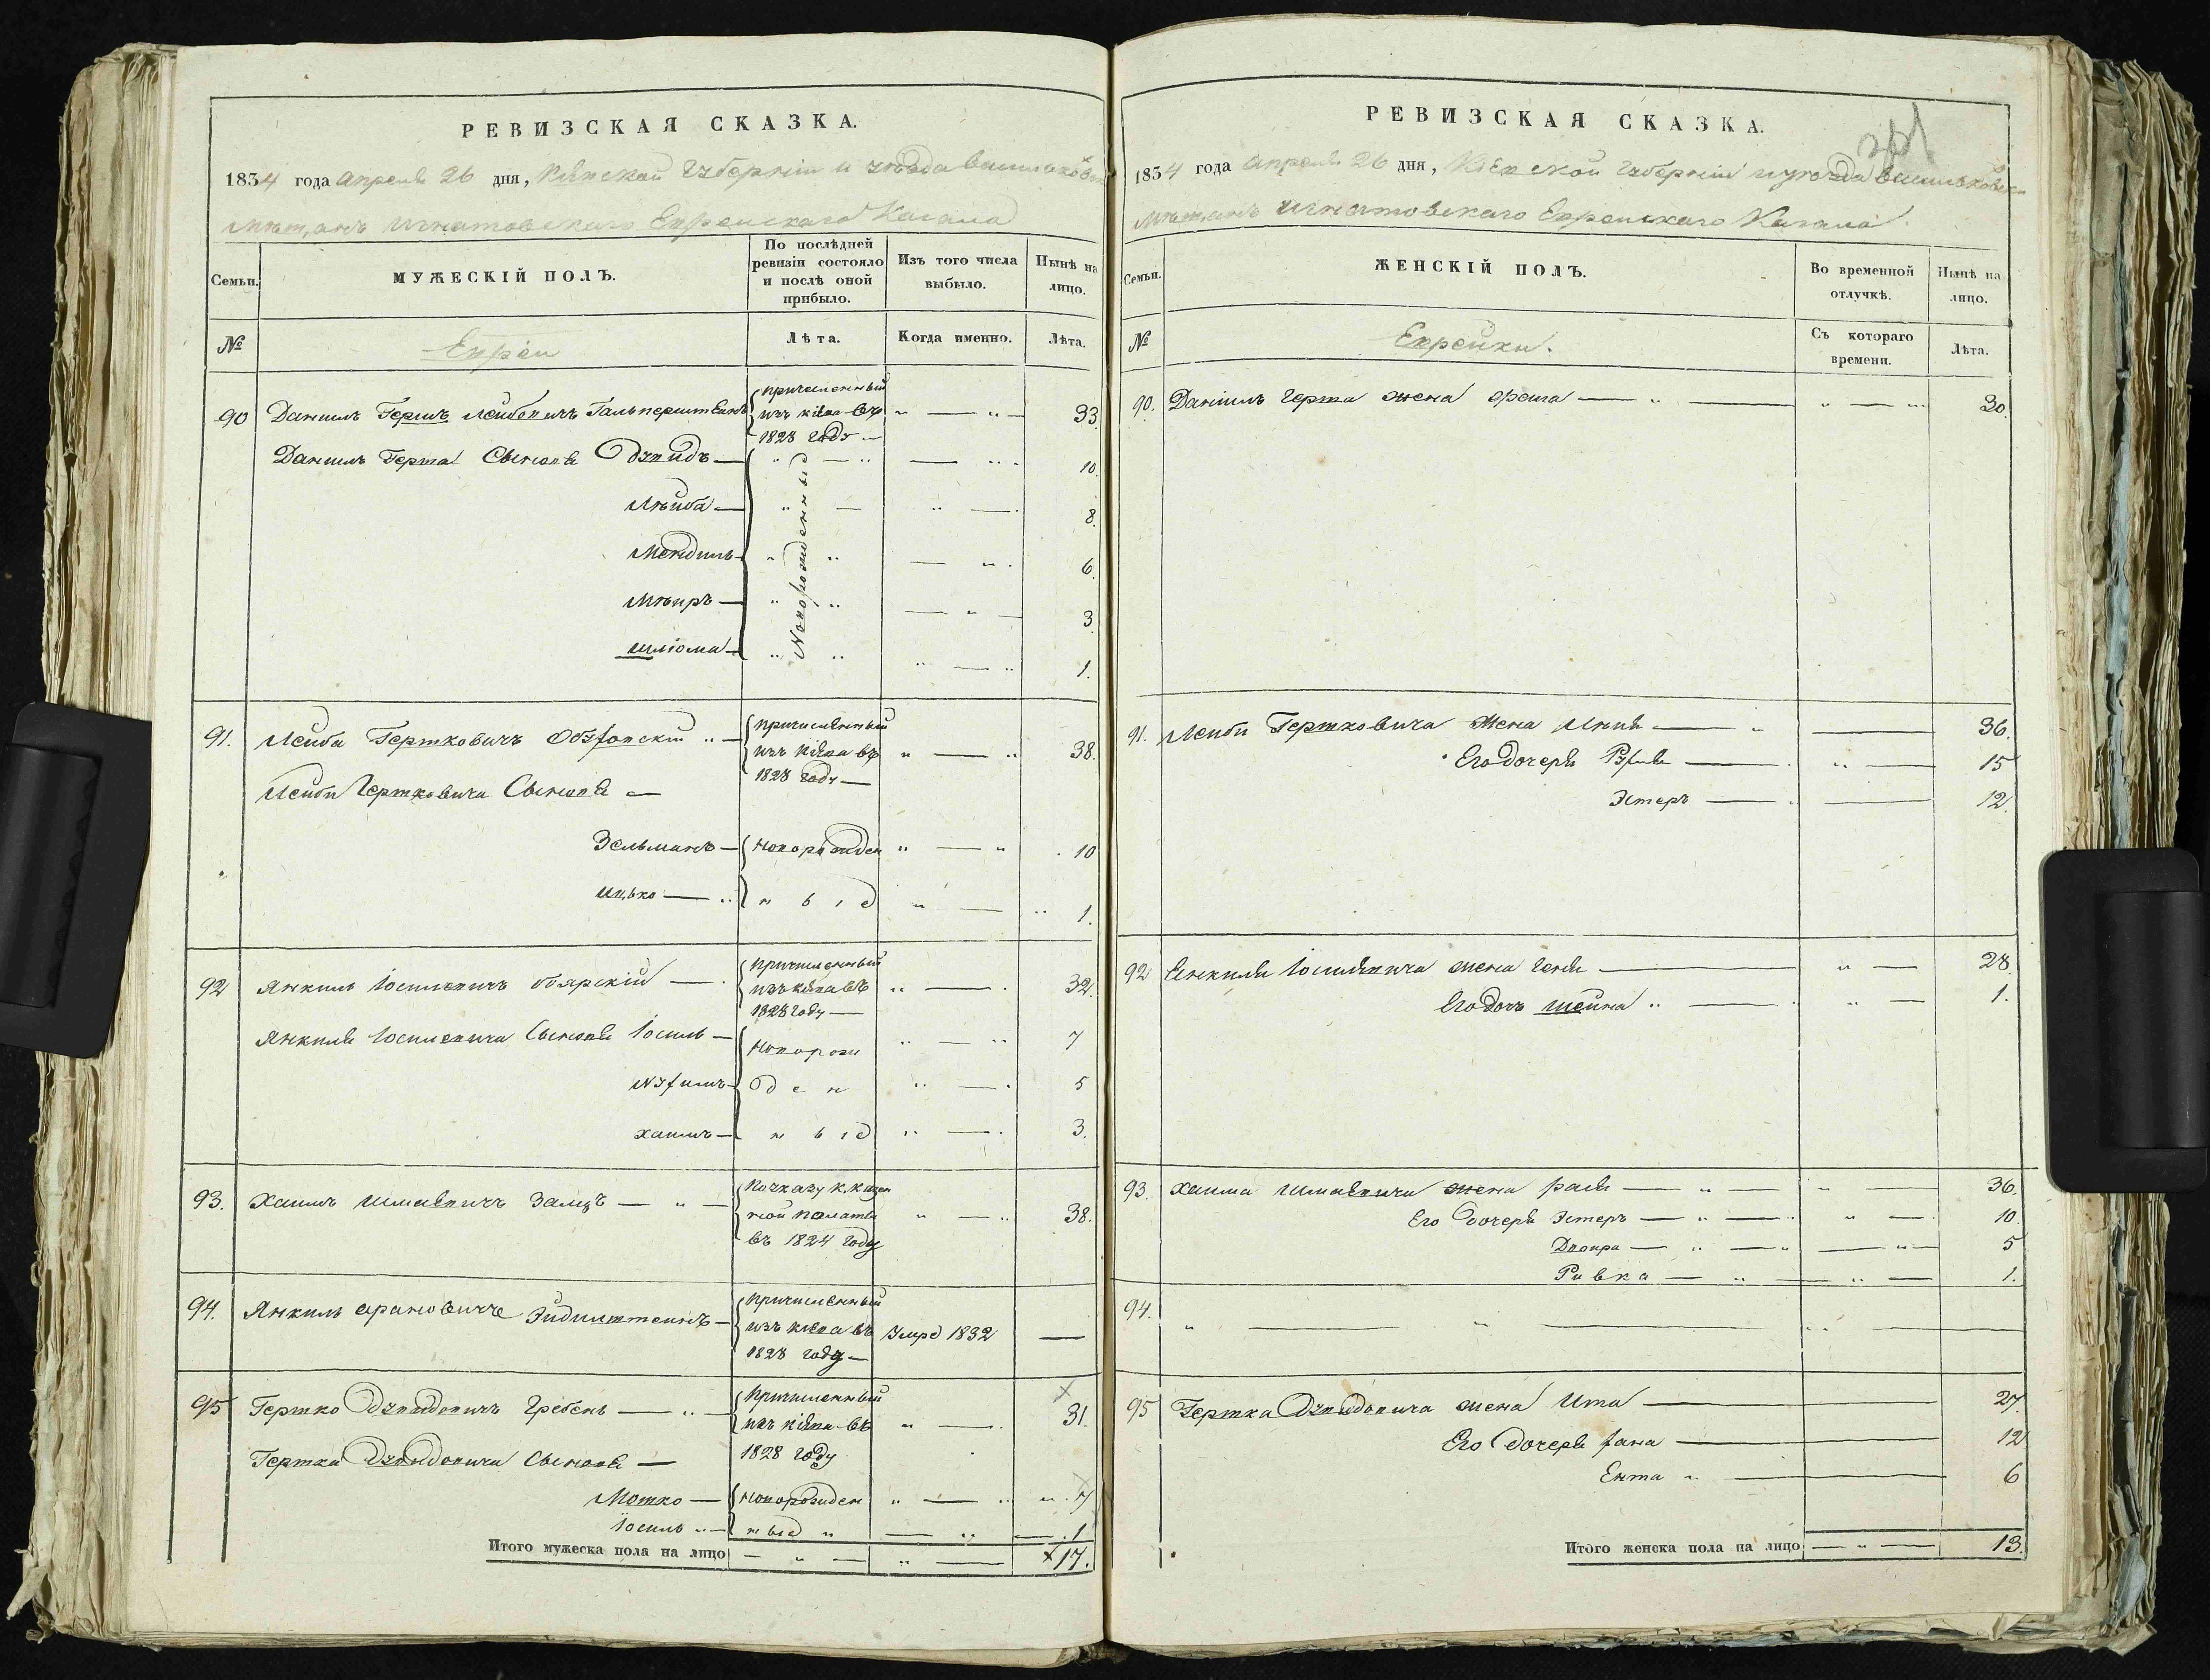 РЕВИЗСКАЯ СКАЗКА.
1834 года апреля 26 дня, Кіевской губерніи и уѣзда
Игнатовскаго Еврейскаго Кагала
Семьи.
МУЖЕСКІЙ ПОЛЪ.
По послѣдней ревизіи состояло и послѣ оной прибыло.
Изъ того числа выбыло.
Нынѣ на лицо.
№
Евреи
Лѣта.
Когда именно.
Лѣта.
90 Данилъ Гершъ Лейбовичъ Гальперштейнъ причисленный изъ Кіева въ 1828 году 33.
Данилъ Герша Сыновья Дувидъ 10
Лейба 8.
Мендиль 6.
Меиръ 3
Шліома 1.
Новорожденные
91. Лейба Гершковичъ причисленный изъ Кіева въ 1828 году 38.
Лейби Гершковича Сыновья
Зельманъ новорожден 10
Ицько ные 1.
92 Янкиль Іосилевичъ Боярскій причисленный изъ Кіева въ 1828 году 32.
Янкиля Іосилевича Сыновья Іосиль новорож 7
ден 5
Хаимъ ные 3.
93. Хаимъ Шмаевичъ Замцъ По указу К. казенной палаты въ 1824 году 38.
94. Янкиль Арановичъ причисленный изъ Кіева въ 1828 году умре 1832
95 Гершко Дувидовичъ Гребень причисленный изъ Кіева въ 1828 году 31.
Гершка Дувидовича Сыновья
Мошко новорожден 7
Іосиль ные 1
Итого мужеска пола на лицо 17.
РЕВИЗСКАЯ СКАЗКА.
1834 года апреля 26 дня, Кіевской губерніи и уѣзда
Игнатовскаго Еврейскаго Кагала.
Семьи.
ЖЕНСКІЙ ПОЛЪ.
Во временной отлучкѣ.
Нынѣ на лицо.
№
Еврейки.
Съ котораго времени.
Лѣта.
90. Данилъ Герша жена 30.
91. Лейби Гершковича жена 36.
Его дочери 15
Эстеръ 12.
92 Янкиля Іосилевича жена Геня 28.
Его дочь Шейна 1.
93. Хаима Шмаевича жена 36.
Его дочери Эстеръ 10.
Двоира 5
Ривка 1.
94.
95 Гершка Дувидовича жена Ита 27.
Его дочери 12
Ента 6
Итого женска пола на лицо 13.